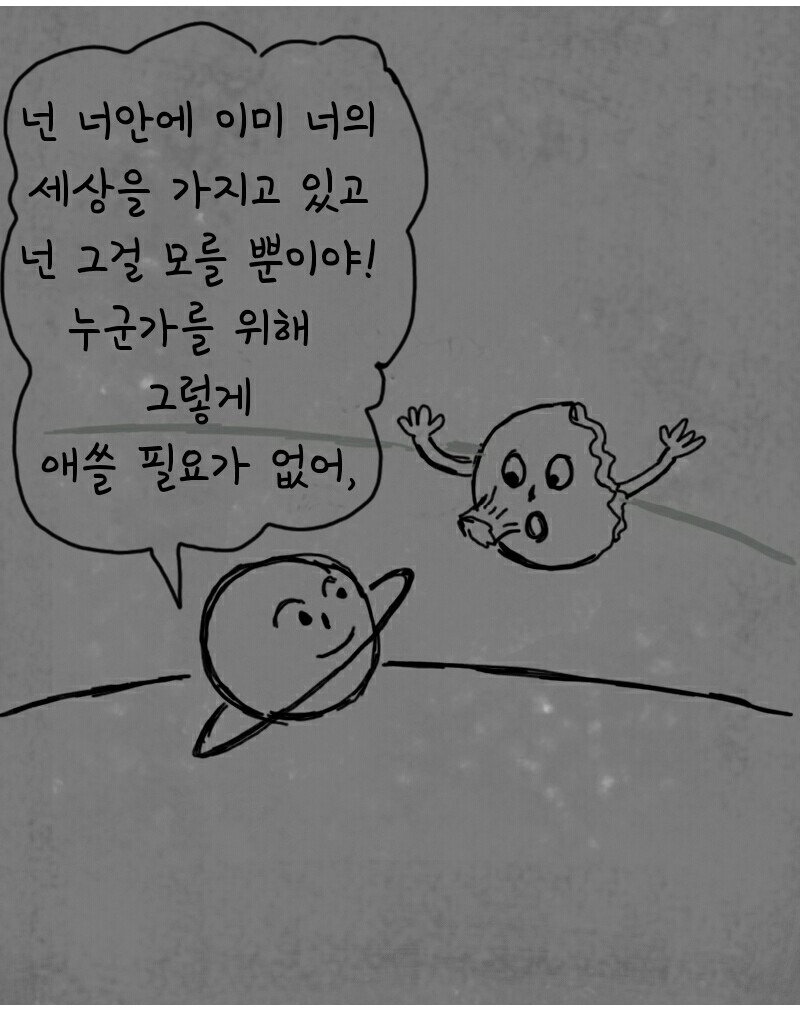 넌 너안에 이미 너의
세상을 가지고 있고
넌 그걸 모를 뿐이야!
누군가를 위해
그렇게
애쓸 필요가 없어,